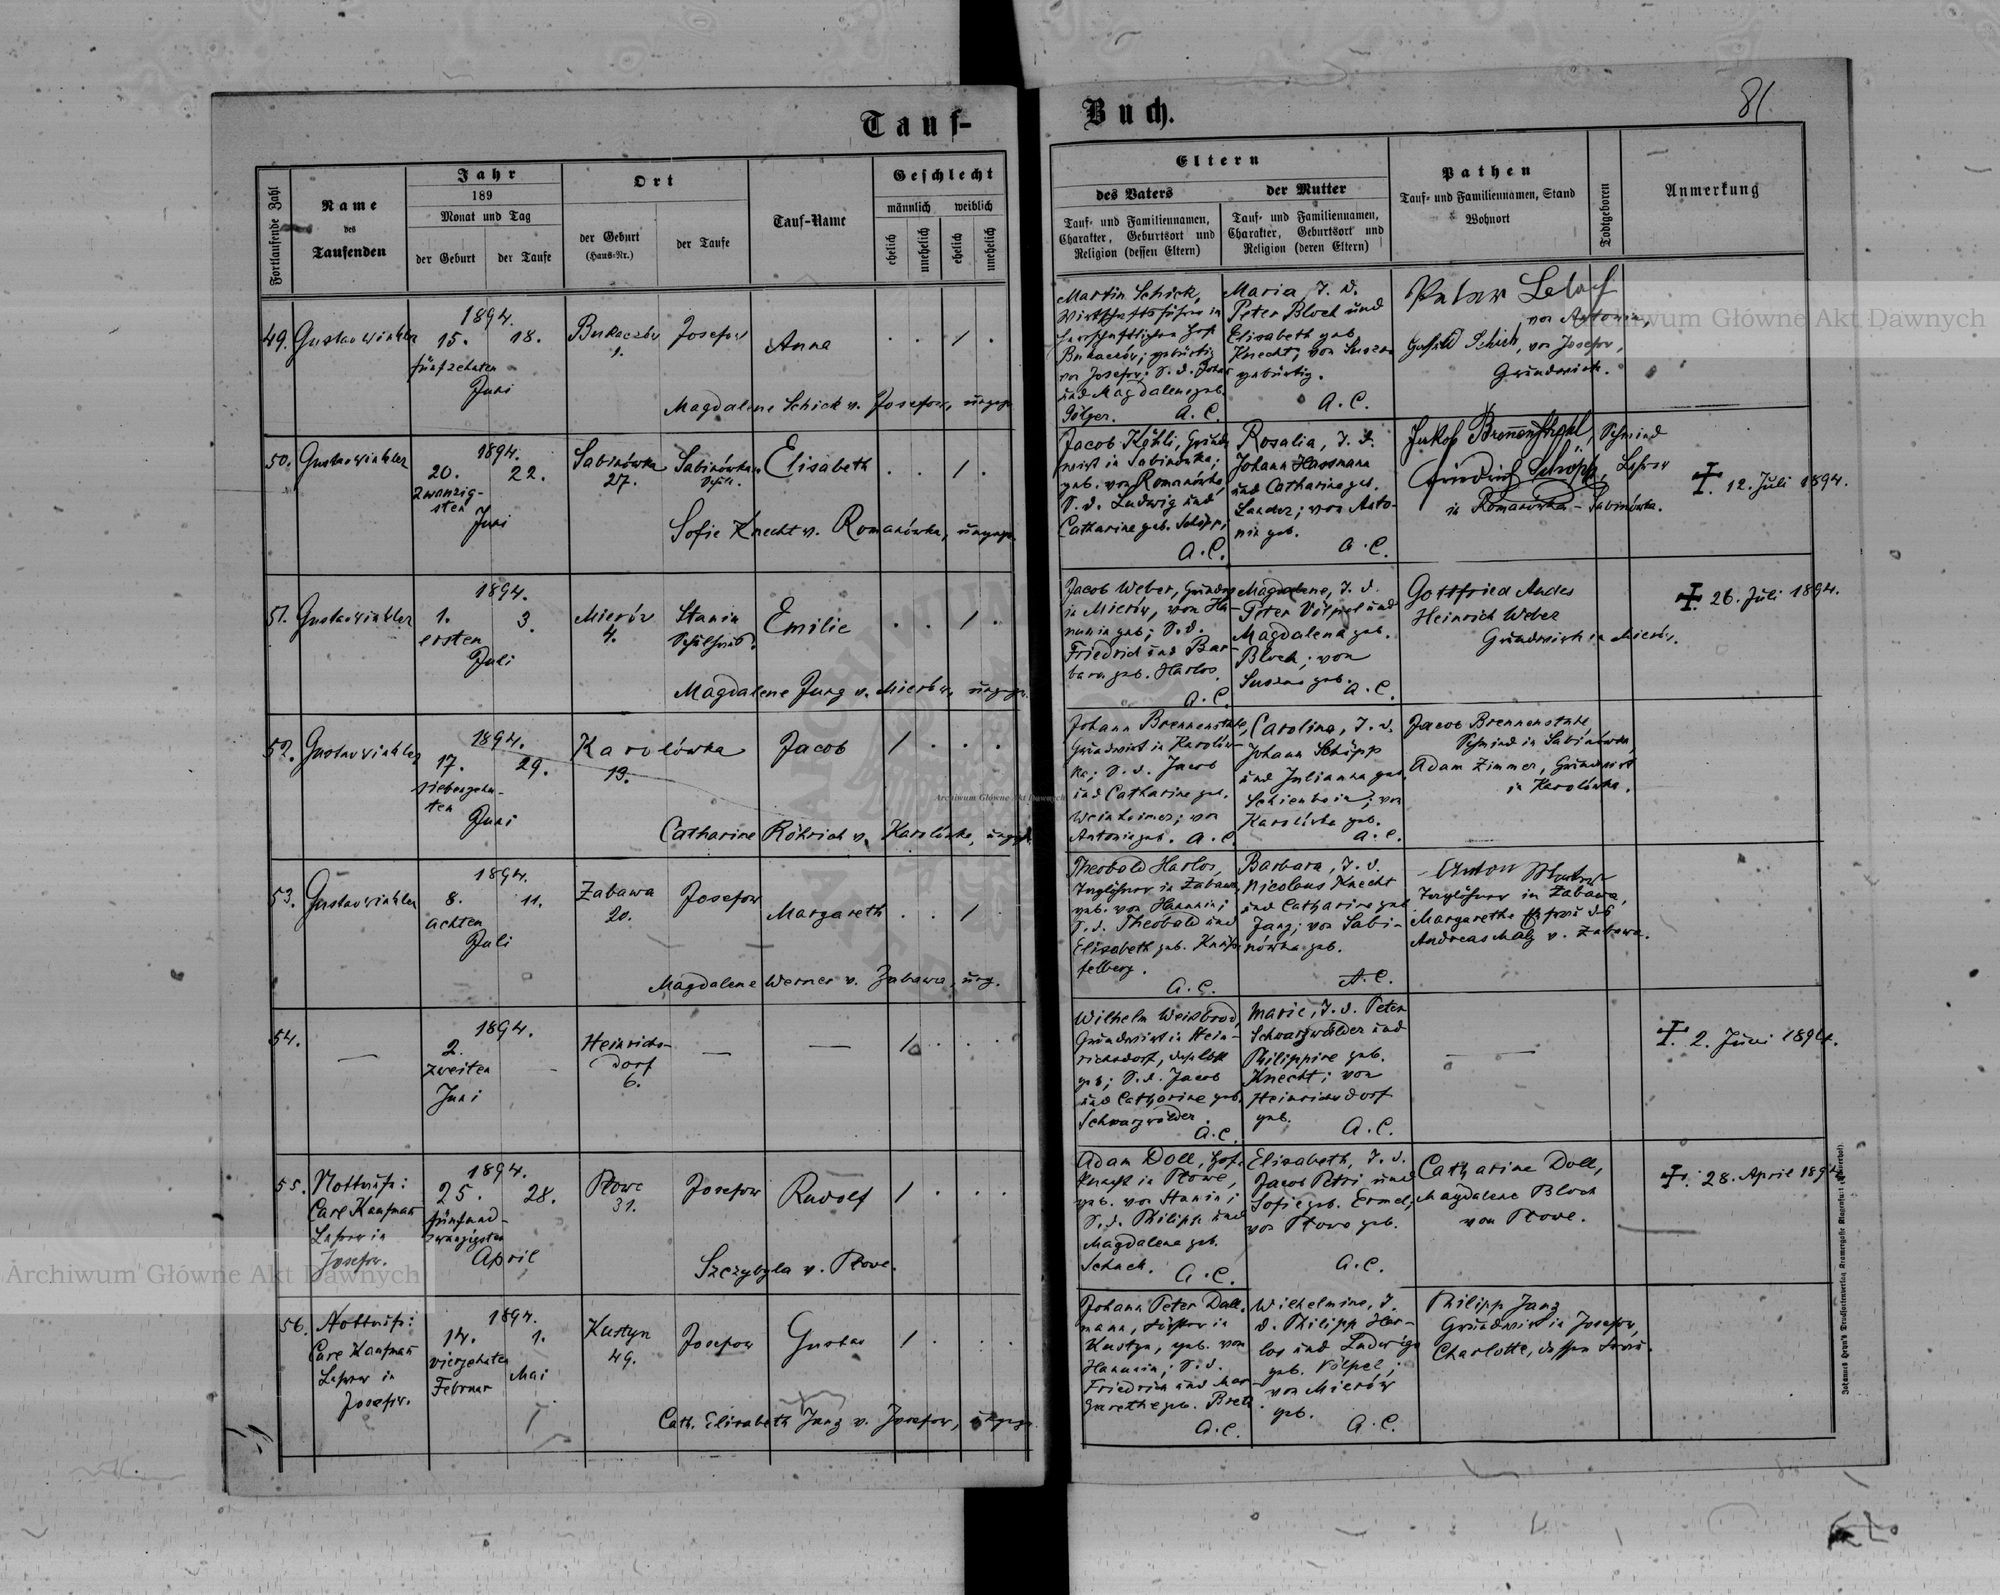 Tauf-
Buch.
81.
Fortlaufende Zahl
Name
des
Taufenden
Jahr
189
Monat und Tag
der Geburt
der Taufe
Ort
der Geburt
(Haus-Nr.)
der Taufe
Tauf-Name
Geschlecht
männlich
weiblich
ehelich
unehelich
ehelich
unehelich
Eltern
des Vaters
Tauf- und Familiennamen,
Charakter, Geburtsort und
Religion (dessen Eltern)
der Mutter
Tauf- und Familiennamen,
Charakter, Geburtsort und
Religion (deren Eltern)
Pathen
Tauf- und Familiennamen, Stand
Wohnort
Todtgeboren
Anmerkung
49.
Gustav Winkler
1894.
15.
18.
fünfzehnten
Juni
Bukaczów
1.
Josefow
Anna
/
Magdalene Schick v. Josefow,
Martin Schick,
Wirtschaftsführer in
herrschaftlichen Hofe
Bukaczów; gebürtig
von Josefow; S. d. Johann
und Magdalene geb.
A. C.
Maria, T. d.
Peter Bloch und
Elisabeth geb.
Knecht; von
gebürtig.
A. C.
von Antonin,
Schick, von Josefow,
Grundwirte.
50.
Gustav Winkler
1894.
20.
22.
zwanzig-
sten
Juni
Sabinówka
27.
Sabinówka
Schule.
Elisabeth
/
Sofie Knecht v. Romanówka,
Jacob Köhli, Grund-
wirt in Sabinówka;
geb. von Romanówka,
S. d. Ludwig und
Catharine geb. Schöpp;
A. C.
Rosalia, T. d.
Johann
und Catharine geb.
Lander; von Anto-
nin geb.
A. C.
Jakob Brennenstuhl, Schmied
Friedrich Schöpp, Lehrer
in Romanówka - Sabinówka.
✝. 12. Juli 1894.
51.
Gustav Winkler
1894.
1.
3.
ersten
Juli
Mierów
4.
Stanin
Schulhaus.
Emilie
/
Magdalene Jung v. Mierów,
Jacob Weber, Grundwirt
in Mierów, von Ha-
nunin geb; S. d.
Friedrich und Bar-
bara geb. Harlos.
A. C.
Magdalene, T. d.
Peter Völpel und
Magdalena geb.
Bloch; von
geb.
A. C.
Gottfried Andes
Heinrich Weber
Grundwirte in Mierów.
✝. 26. Juli 1894.
52.
Gustav Winkler
1894.
17.
29.
siebzehn-
ten
Juni
Karolówka
19.
Jacob
/
Catharine Röhrich v. Karolówka,
Johann Brennenstuhl,
Grundwirt in Karolów-
ka; S. d. Jacob
und Catharine geb.
Weinheimer; von
Antonin geb. A. C.
Carolina, T. d.
Johann Schöpp
und Julianna geb.
Schienbein; von
Karolówka geb.
A. C.
Jacob Brennenstuhl
Schmied in Sabinówka,
Adam Zimmer, Grundwirt
in Karolówka.
53.
Gustav Winkler
1894.
8.
11.
achten
Juli
Zabawa
20.
Josefow
Margareth
/
Magdalene Werner v. Zabawa,
Theobald Harlos,
Taglöhner in Zabawa,
geb. von Hanunin;
S. d. Theobald und
Elisabeth geb.
A. C.
Barbara, T. d.
Nicolaus Knecht
und Catharine geb.
Jang; von Sabi-
nówka geb.
A. C.
Anton
Taglöhner in Zabawa,
Margarethe Frau des
Andreas Malz v. Zabawa.
54.
1894.
2.
zweiten
Juni
Heinrichs-
dorf
6.
/
Wilhelm Weisbrod,
Grundwirt in Hein-
richsdorf,
geb; S. d. Jacob
und Catharine geb.
Schwarzwälder.
A. C.
Marie, T. d. Peter
Schwarzwälder und
Philippine geb.
Knecht; von
Heinrichsdorf
geb.
A. C.
✝. 2. Juni 1894.
55.
Nottaufe:
Carl Kaufmann
Lehrer in
Josefow.
1894.
25.
28.
fünfund-
zwanzigsten
April
Rowe
31.
Josefow
Rudolf
/
Szczybyla v. Rowe.
Adam Doll,
in Rowe,
geb. von Stanin;
S. d. Philipp und
Magdalene geb.
Schuch. A. C.
Elisabeth, T. d.
Jacob Petri und
Sofie geb. Ermel;
von Rowe geb.
A. C.
Catharine Doll,
Magdalene Bloch
von Rowe.
✝. 28. April 1894.
56.
Nottaufe:
Carl Kaufmann
Lehrer in
Josefow.
1894.
14.
1.
vierzehnten
Februar
Mai
Kustyn
49.
Josefow
Gustav
/
Cath. Elisabeth Jang v. Josefow,
Johann Peter Dall-
mann, Förster in
Kustyn, geb. von
Hanunin; S. d.
Friedrich und Mar-
garethe geb. Bretz.
A. C.
Wilhelmine, T.
d. Philipp Har-
los und Ludwiga
geb. Völpel;
von Mierów
geb.
A. C.
Philipp Jang
Grundwirt in Josefow,
Charlotte, dessen Frau.
Archiwum Główne Akt Dawnych
Archiwum Główne Akt Dawnych
Archiwum Główne Akt Dawnych